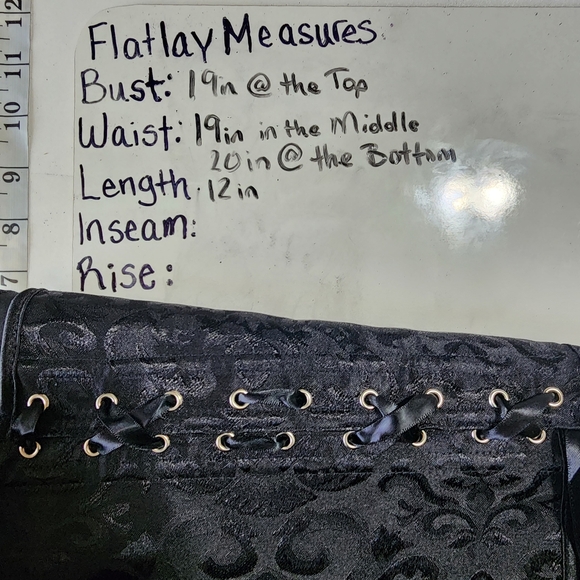 Flatlay Measures
Bust: 19in @ the Top
Waist: 19in in the Middle
20in @ the Bottom
Length. 12in
Inseam:
Rise:
12
11
10
9
8
7